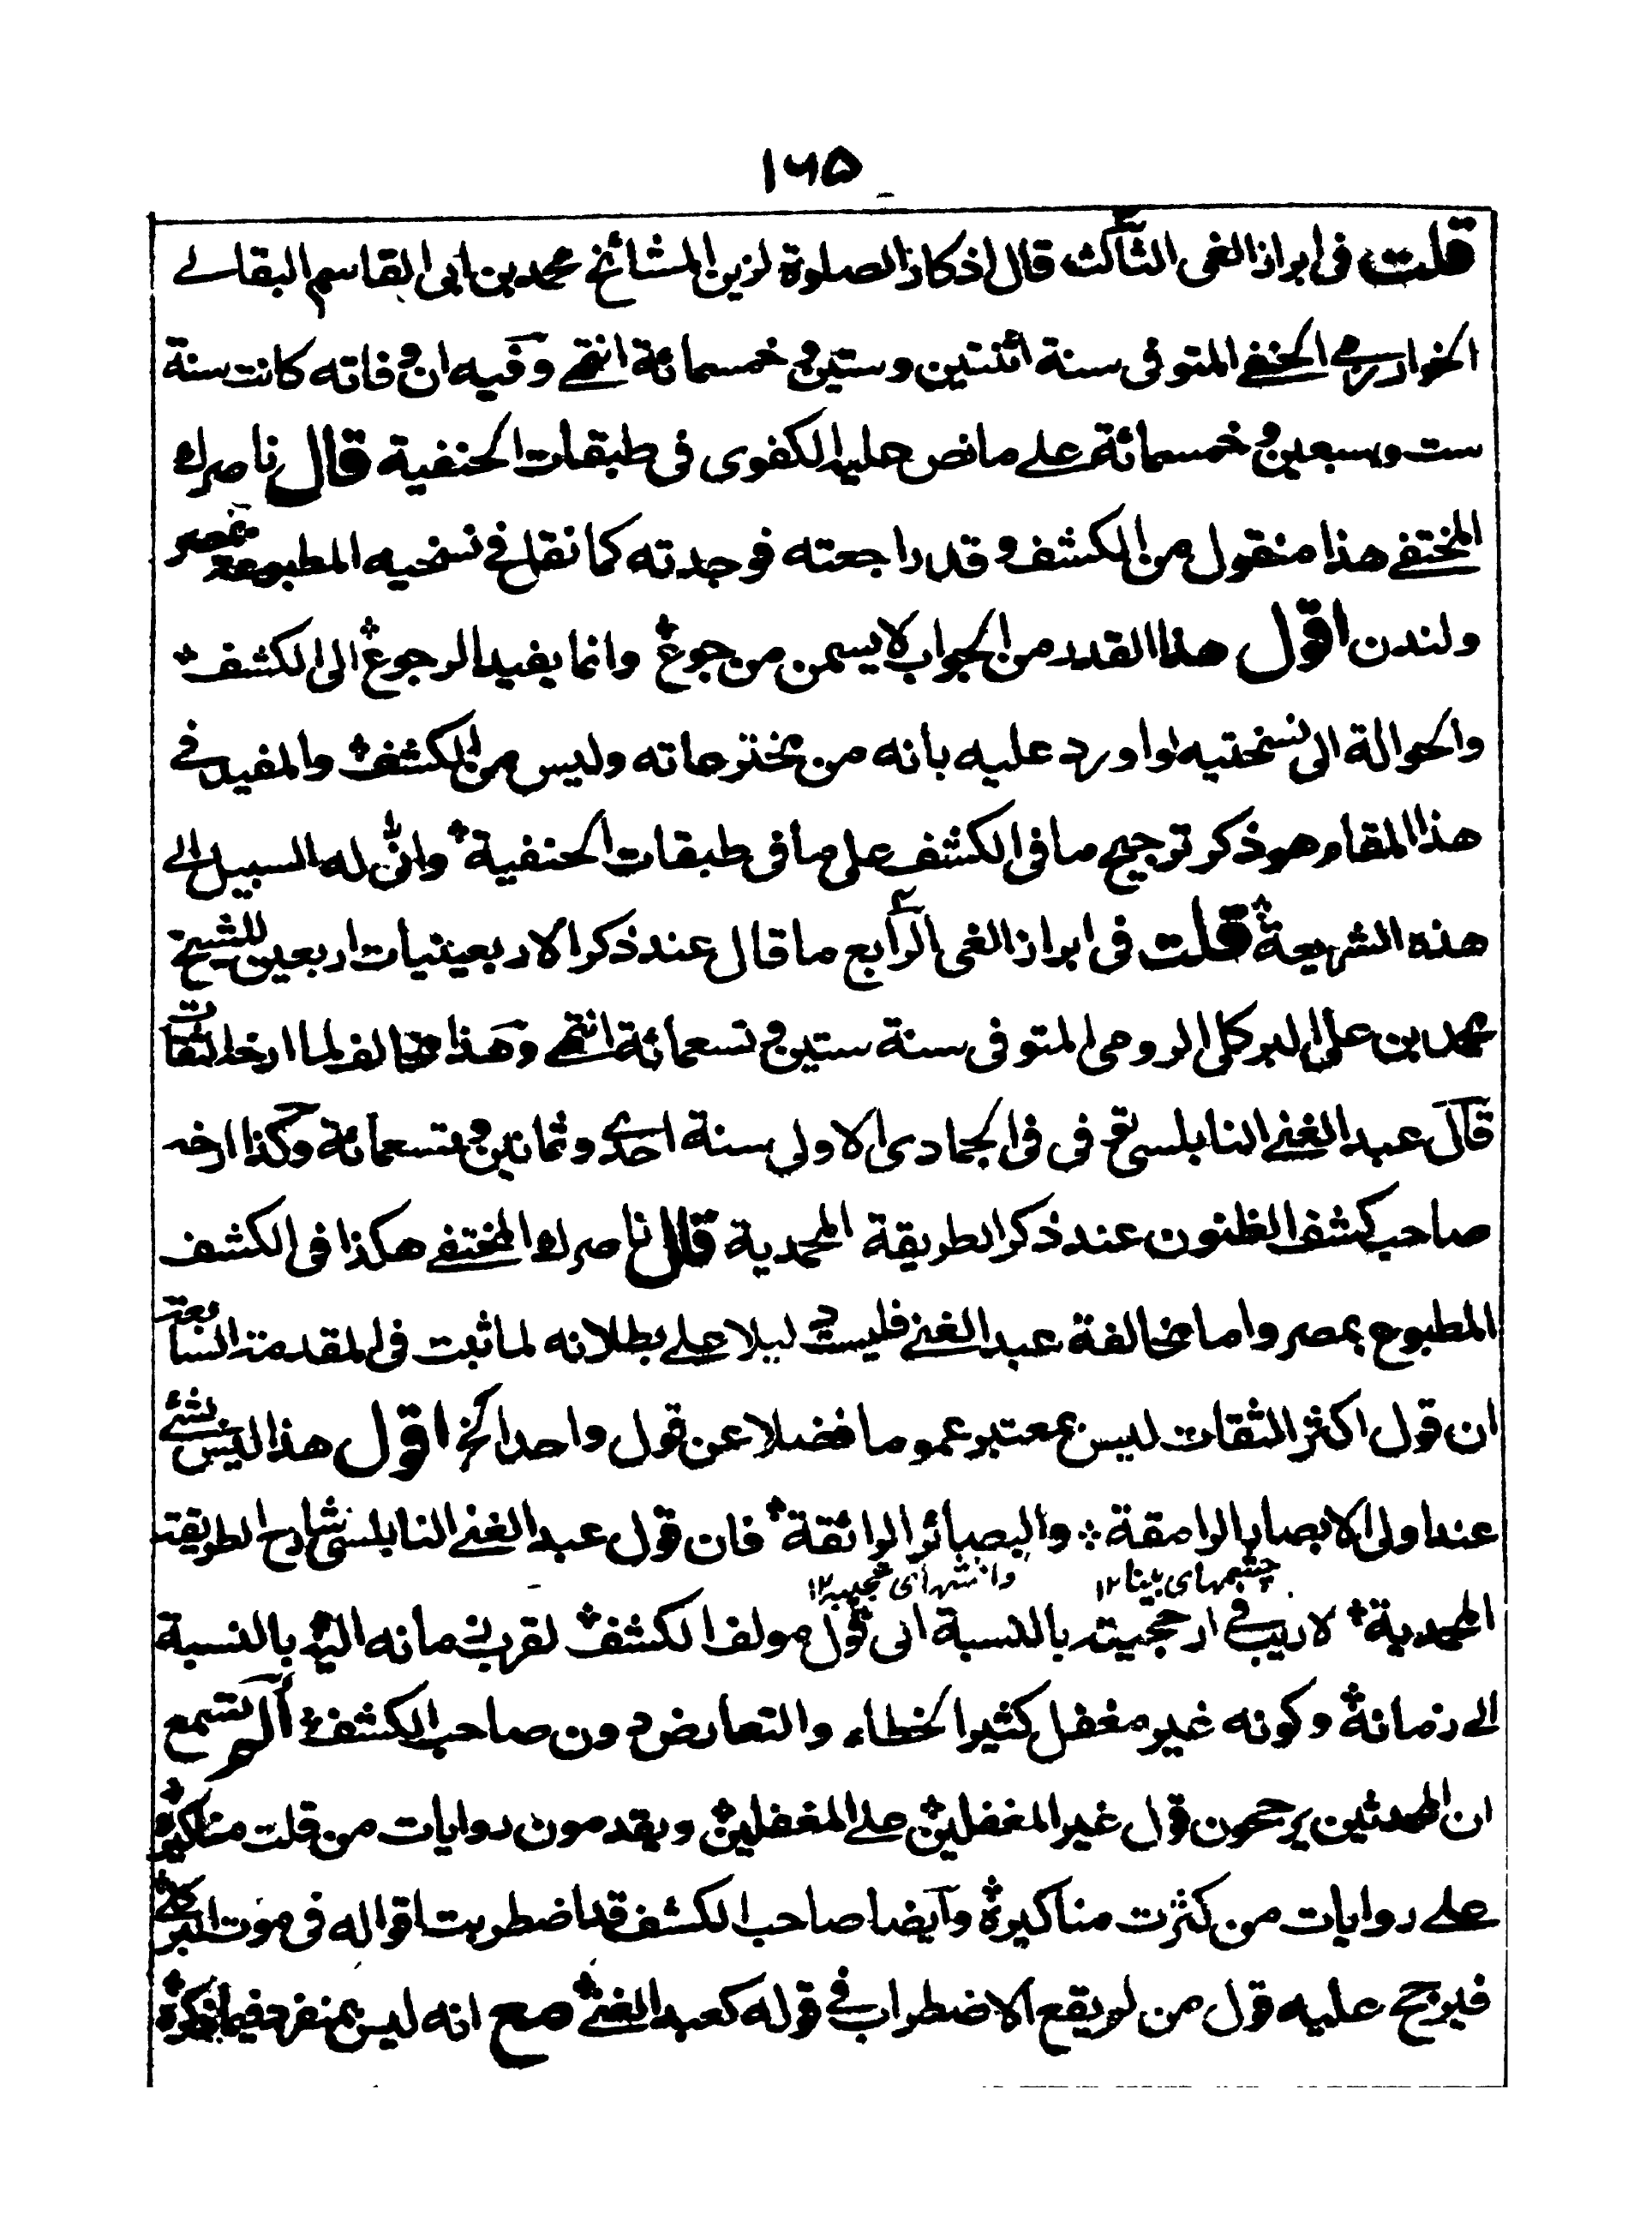 ١٦٥
قلت فى ابراز الغى الثالث قال اذكار الصلوة لزين المشائخ محمد بن ابى القاسم البقالے
الخوارزمى الحنفے المتوفى سنة اثنتين وستين و خمسمائة انتهے وفيه ان وفاته كانت سنة
ست وسبعين و خمسمائة علے ما نص عليه الكفوى فى طبقات الحنفية قال ناصرك
المختفے هذا منقول من الكشف و قد راجعته فوجدته كما نقل فے نسختيه المطبوعة بمصر
ولندن اقول هذا القدر من الجواب لا يسمن من جوع وانما يفيد الرجوع الى الكشف
والحوالة الى نسختيه لو اورد عليه بانه من مخترعاته وليس من الكشف والمفيد فے
هذا المقام هو ذكر ترجيح ما فى الكشف على ما فى طبقات الحنفية وانى له السبيل الے
هذه الشريعة قلت فى ابراز الغى الرابع ما قال عند ذكر الاربعينيات اربعين للشيخ
محمد بن على البركلى الرومى المتوفى سنة ستين و تسعمائة انتهے وهذا مخالف لما ارخه الثقات
قال عبد الغنے النابلسى توفى فى الجمادى الاولى سنة احدى وثمانين و تسعمائة وكذا ارخه
صاحب كشف الظنون عند ذكر الطريقة المحمدية قال ناصرك المختفے هكذا فى الكشف
المطبوع بمصر واما مخالفة عبد الغنے فليست دليلا علے بطلانه لما ثبت فى المقدمة السابعة
ان قول اكثر الثقات ليس بمعتبر عموما فضلا عن قول واحد الخ اقول هذا ليس بشئ
عند اولى الابصار الرامقة والبصائر الرائقة فان قول عبد الغنے النابلسى شارح الطريقة
چشمهاى بينا ١٢ وانشهاى عجيبه ١٢
المحمدية لا ريب فے ارجحيته بالنسبة الى قول مولف الكشف لقرب زمانه اليه بالنسبة
الے زمانه وكونه غير مغفل كثير الخطاء والتعارض دون صاحب الكشف ألم تسمع
ان المحدثين يرجحون قول غير المغفلين علے المغفلين ويقدمون روايات من قلت مناكيره
علے روايات من كثرت مناكيره وايضا صاحب الكشف قد اضطربت اقواله فى موت البركلى
فيرجح عليه قول من لم يقع الاضطراب فے قوله كعبد الغنے مع انه ليس بمنفرد فيما ذكره